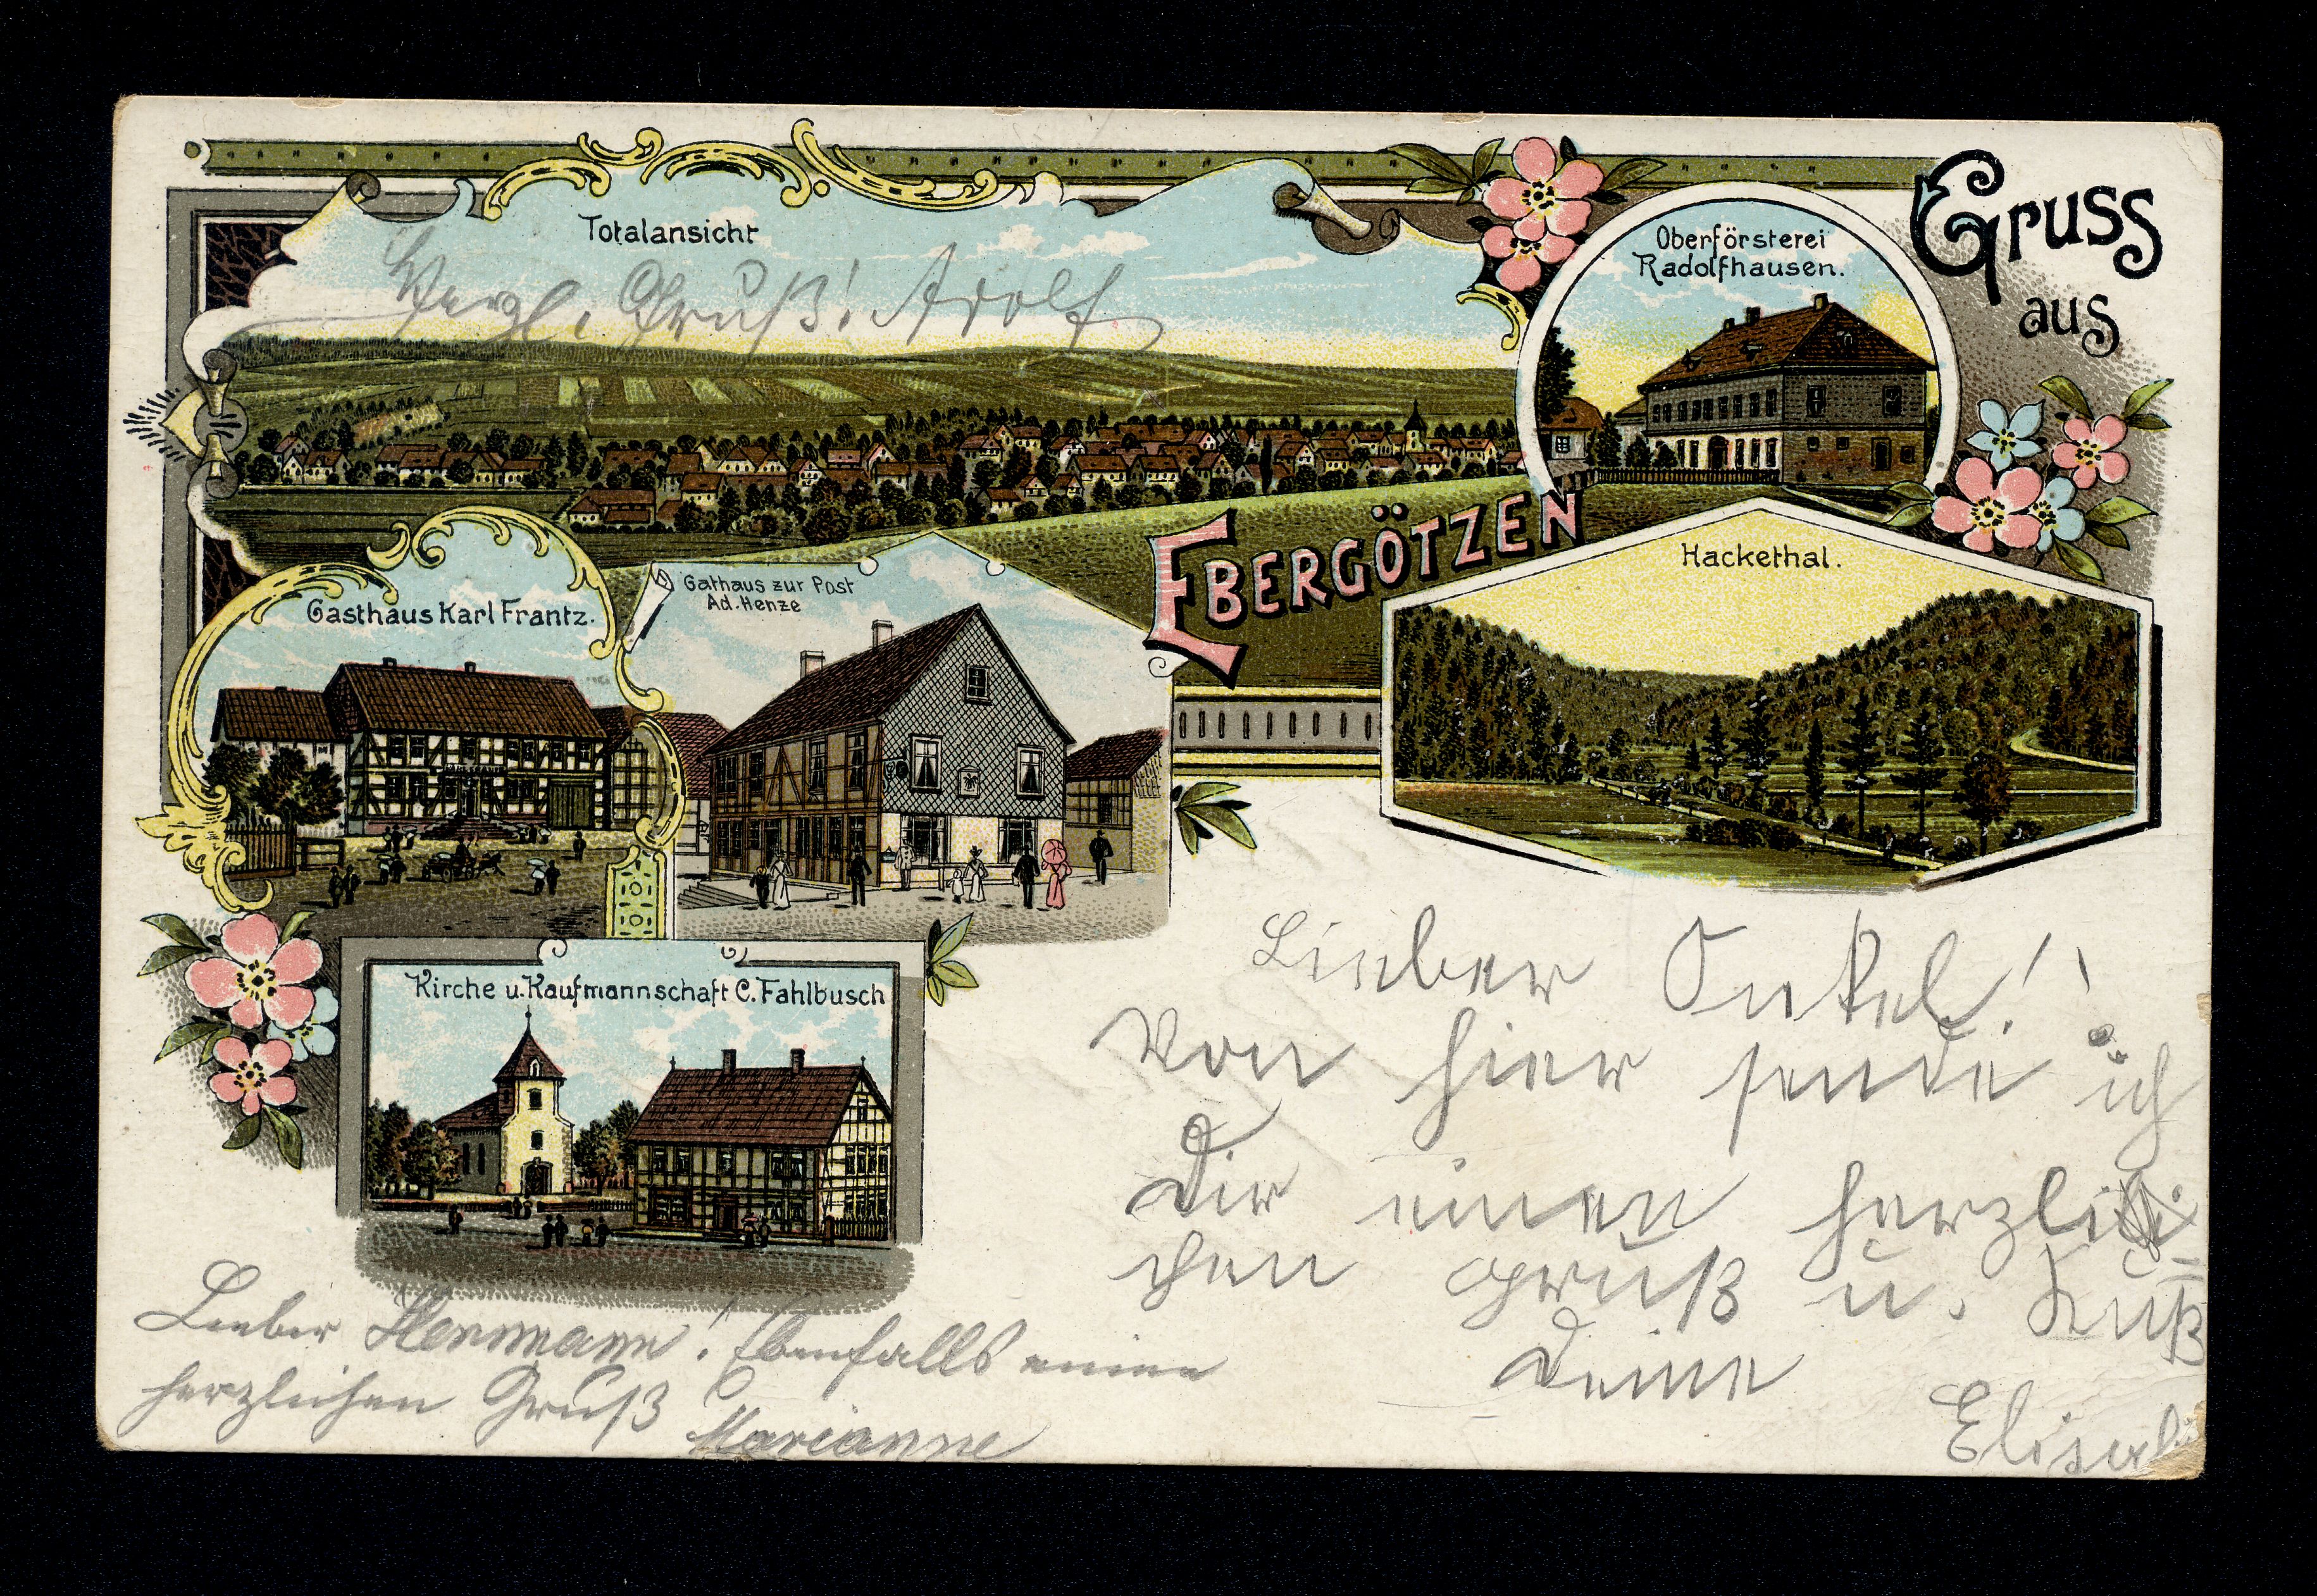 Totalansicht
Herzl. Gruß! Adolf
Oberförsterei
Radolfhausen.
Gruss
aus
EBERGÖTZEN
Hackethal.
Gasthaus Karl Frantz.
Gathaus zur Post
Ad. Henze
Kirche u. Kaufmannschaft C. Fahlbusch
Lieber Onkel!
Von hier sende ich
Dir einen herzli=
chen Gruß u. Kuß
Deine
Lieber Hermann! Ebenfalls einen
herzlichen Gruß
Marianne